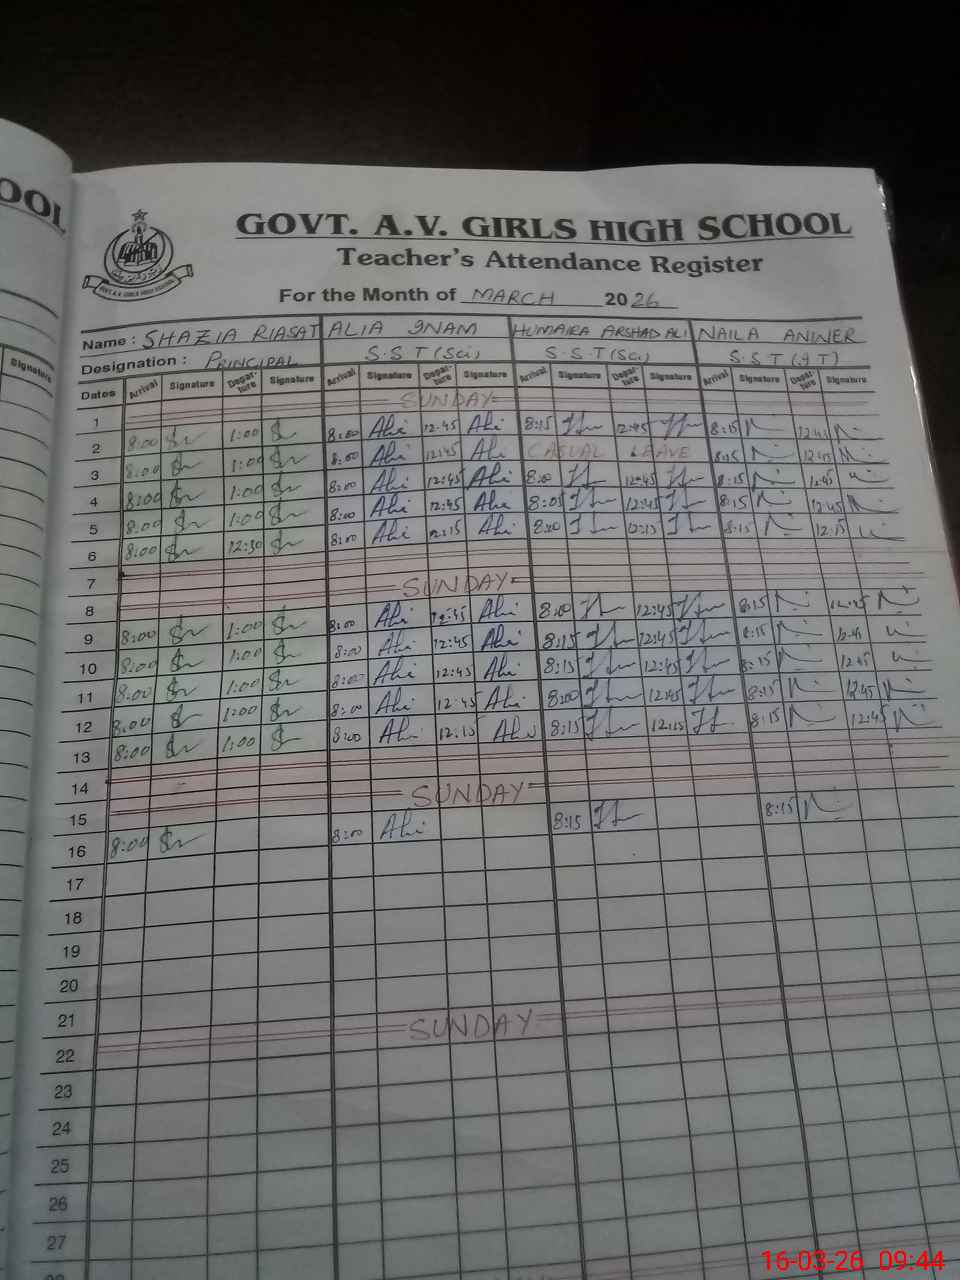 OOL
Signature
GOVT. A.V. GIRLS HIGH SCHOOL
Teacher's Attendance Register
GOVT. A.V. GIRLS HIGH SCHOOL
For the Month of MARCH 2026
Name : SHAZIA RIASAT ALIA INAM HUMAIRA ARSHAD ALI NAILA ANWER
Designation : PRINCIPAL S.S.T (Sci) S.S.T (Sci) S.S.T (IT)
Dates Arrival Signature Depar-ture Signature Arrival Signature Depar-ture Signature Arrival Signature Depar-ture Signature Arrival Signature Depar-ture Signature
1 SUNDAY
2 8:00 1:00 8:00 Ali 12:45 Ali 8:15 12:45 8:15 12:45
3 8:00 1:00 8:00 Ali 12:45 Ali CASUAL LEAVE 8:15 12:45
4 8:00 1:00 8:00 Ali 12:45 Ali 8:00 12:45 8:15 12:45
5 8:00 1:00 8:00 Ali 12:45 Ali 8:05 12:45 8:15 12:45
6 8:00 12:30 8:00 Ali 12:15 Ali 8:00 12:15 8:15 12:15
7
8 SUNDAY
9 8:00 1:00 8:00 Ali 12:45 Ali 8:00 12:45 8:15 12:45
10 8:00 1:00 8:00 Ali 12:45 Ali 8:15 12:45 8:15 12:45
11 8:00 1:00 8:00 Ali 12:45 Ali 8:15 12:45 8:15 12:45
12 8:00 1:00 8:00 Ali 12:45 Ali 8:00 12:45 8:15 12:45
13 8:00 1:00 8:00 Ali 12:15 Ali 8:15 12:15 8:15 12:45
14
15 SUNDAY
16 8:00 8:00 Ali 8:15 8:15
17
18
19
20
21
22 SUNDAY
23
24
25
26
27
16-03-26 09:44